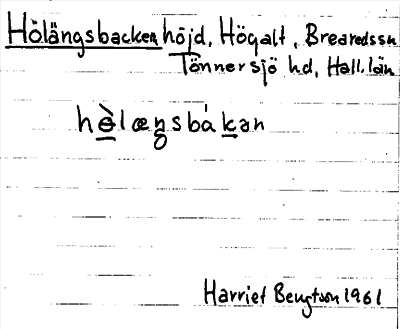 Hölängsbacken höjd, Högalt, Brearedssn
Tönnersjö hd, Hall. län
hèlængsbákan
Harriet Bengtson 1961